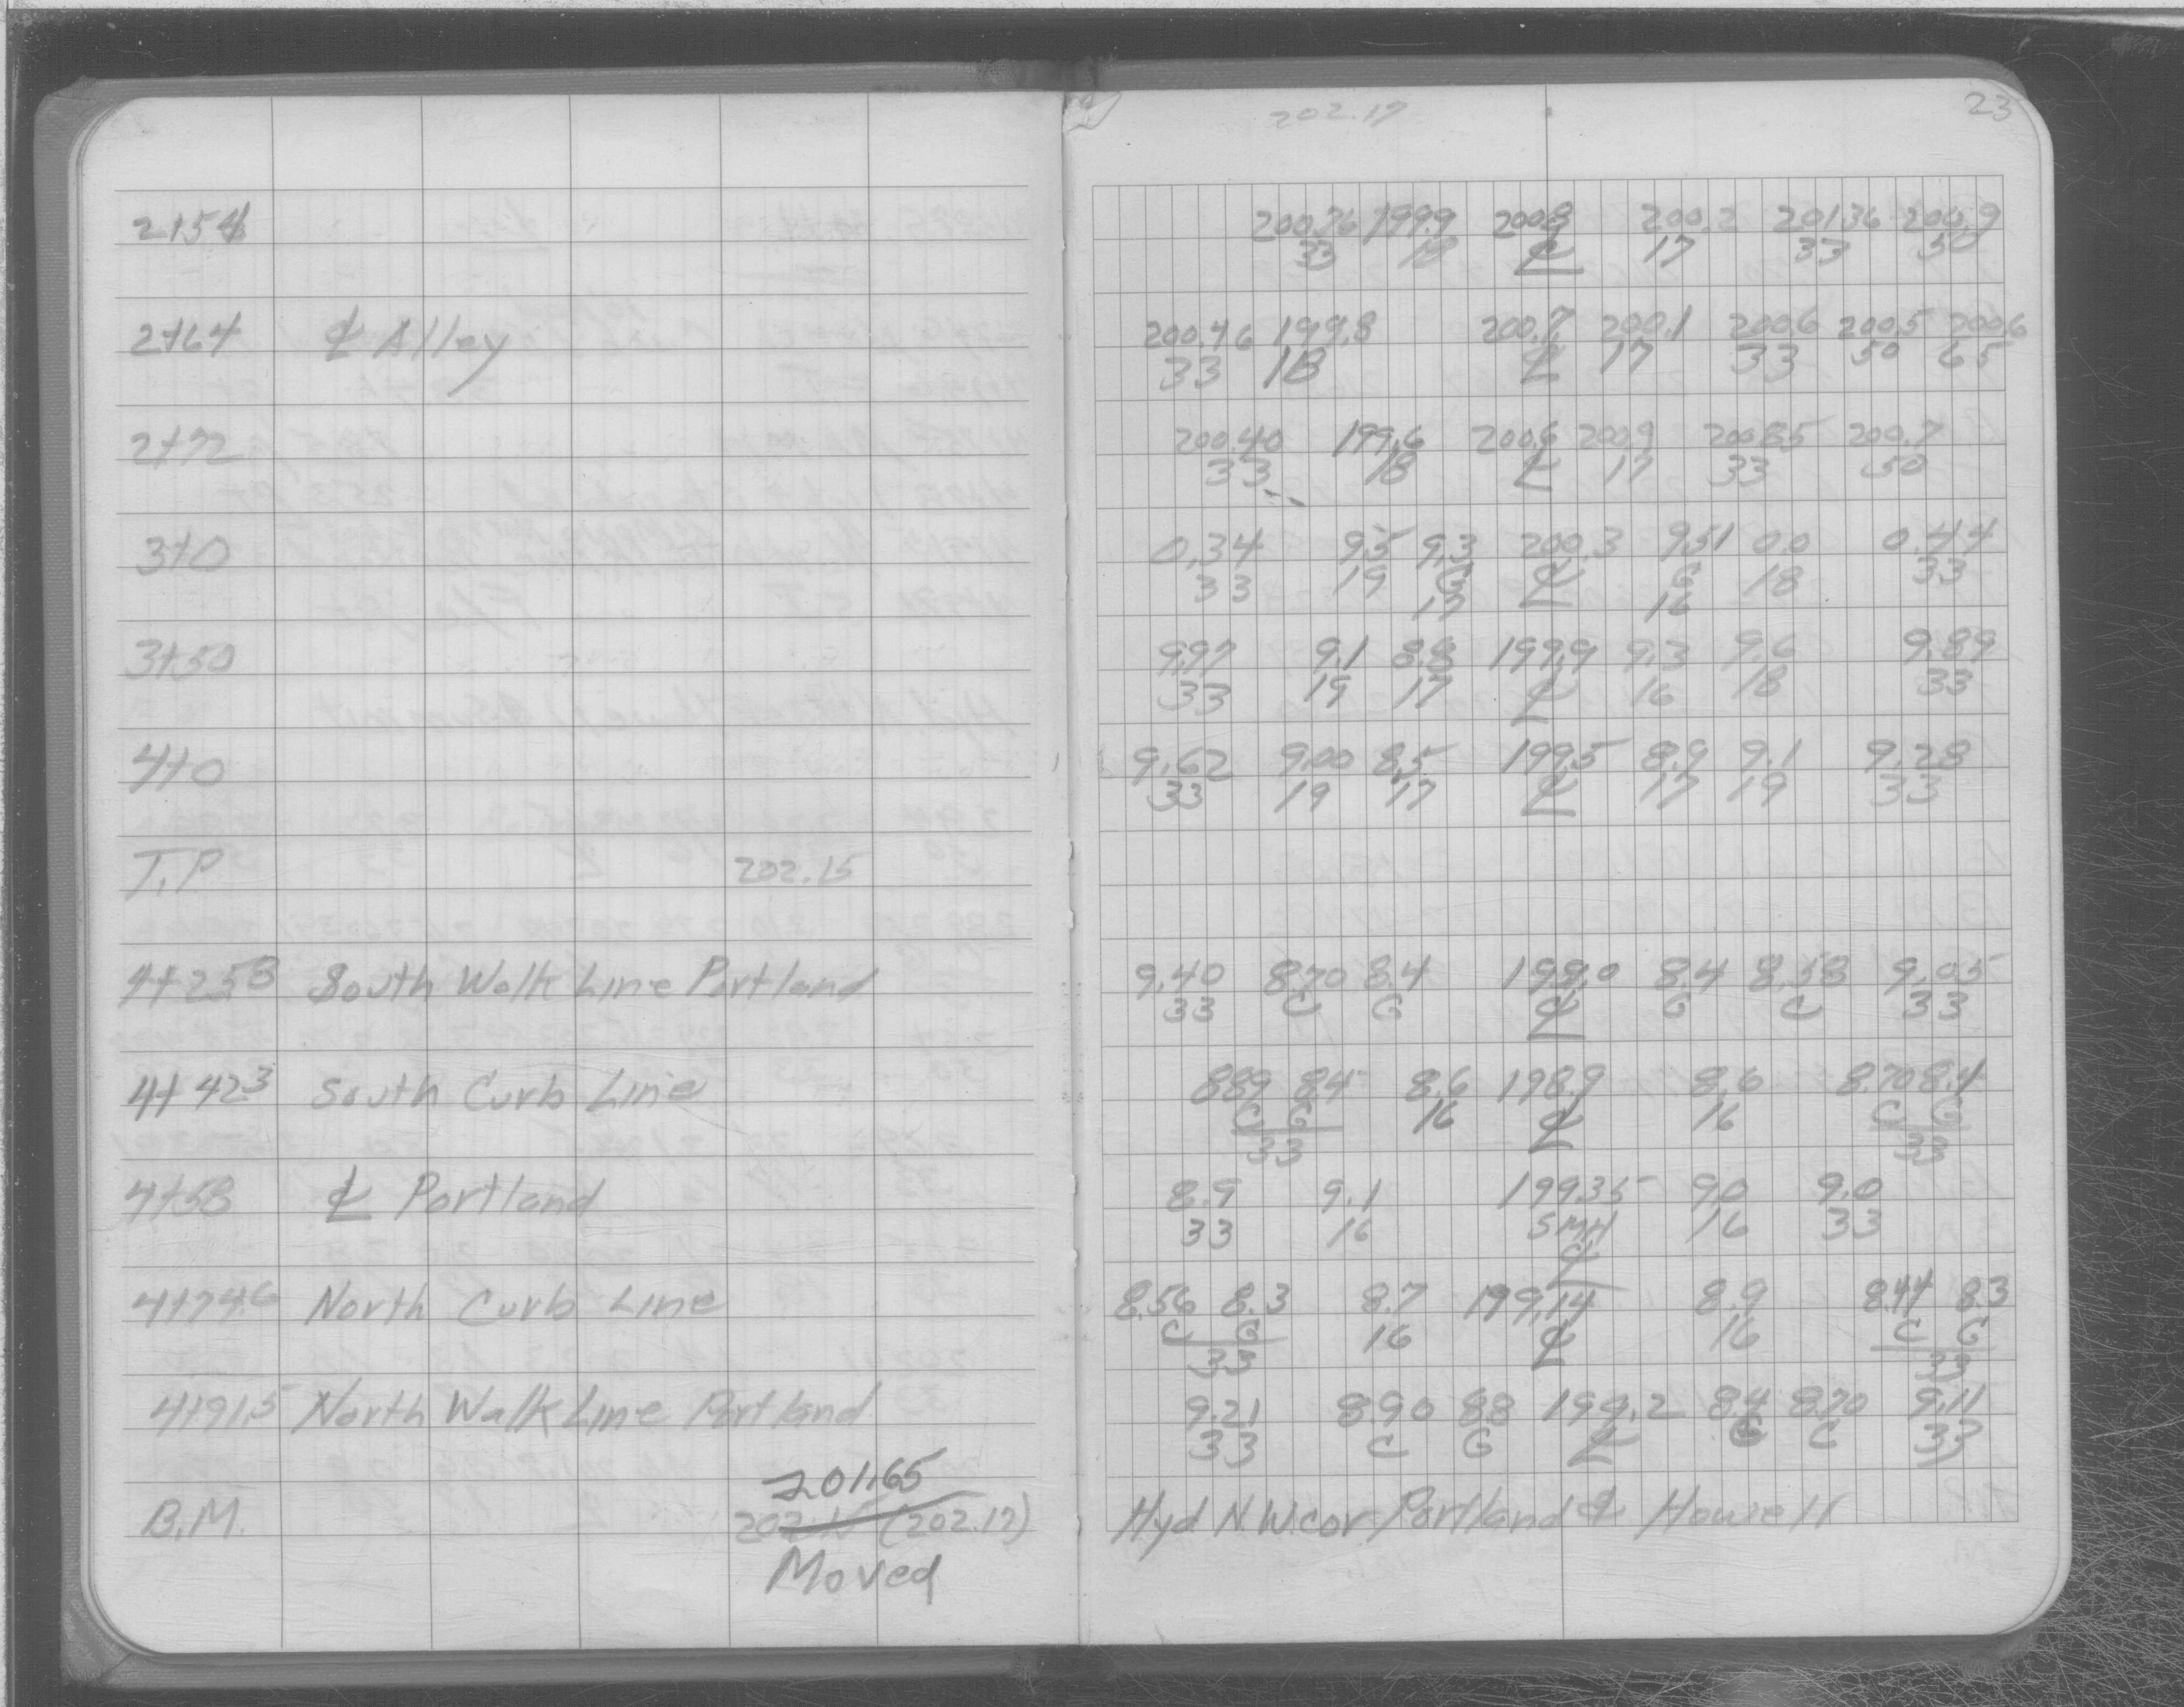 202.17 23
2+54 200.76 199.9 200.8 200.2 201.36 200.9
33 18 ℄ 17 33 50
2+64 ℄ Alley 200.46 199.8 200.7 200.1 200.6 200.5 200.6
33 18 ℄ 17 33 50 65
2+72 200.40 199.6 200.6 200.9 200.85 200.7
33 18 ℄ 17 33 50
3+0 0.34 9.5 9.3 200.3 9.51 0.0 0.44
33 19 G ℄ G 18 33
17 16
3+50 9.97 9.1 8.8 199.9 9.3 9.6 9.89
33 19 17 ℄ 16 18 33
4+0 9.62 9.00 8.5 199.5 8.9 9.1 9.28
33 19 17 ℄ 17 19 33
T.P 202.15
4+258 South Walk Line Portland 9.40 8.70 8.4 199.0 8.4 8.58 9.05
33 C G ℄ G C 33
4+423 South Curb Line 8.89 8.4 8.6 198.9 8.6 8.70 8.4
C G 16 ℄ 16 C G
33 33
4+58 ℄ Portland 8.9 9.1 199.35 9.0 9.0
33 16 SMH 16 33
℄
4+746 North Curb Line 8.56 8.3 8.7 199.14 8.9 8.44 8.3
C G 16 ℄ 16 C G
33 33
4+915 North Walk Line Portland 9.21 8.90 8.8 199.2 8.4 8.70 9.11
33 C G ℄ G C 33
201.65
B.M. 202.15 (202.17) Hyd N.W. cor Portland & Howell
Moved